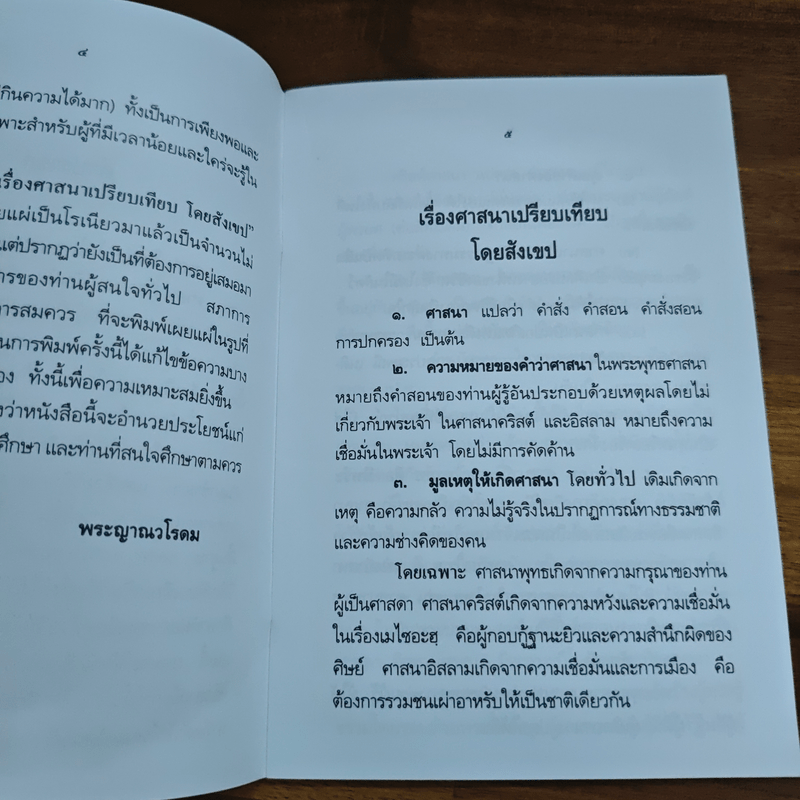 ๔
(กินความได้มาก) ทั้งเป็นการเพียงพอและ
พาะสำหรับผู้ที่มีเวลาน้อยและใคร่จะรู้ใน
รื่องศาสนาเปรียบเทียบ โดยสังเขป"
ยแผ่เป็นโรเนียวมาแล้วเป็นจำนวนไม่
แต่ปรากฏว่ายังเป็นที่ต้องการอยู่เสมอมา
ารของท่านผู้สนใจทั่วไป สภาการ
การสมควร ที่จะพิมพ์เผยแผ่ในรูปที่
นการพิมพ์ครั้งนี้ได้แก้ไขข้อความบาง
อง ทั้งนี้เพื่อความเหมาะสมยิ่งขึ้น
งว่าหนังสือนี้จะอำนวยประโยชน์แก่
ศึกษา และท่านที่สนใจศึกษาตามควร
พระญาณวโรดม
๕
เรื่องศาสนาเปรียบเทียบ
โดยสังเขป
๑. ศาสนา แปลว่า คำสั่ง คำสอน คำสั่งสอน
การปกครอง เป็นต้น
๒. ความหมายของคำว่าศาสนาในพระพุทธศาสนา
หมายถึงคำสอนของท่านผู้รู้อันประกอบด้วยเหตุผลโดยไม่
เกี่ยวกับพระเจ้า ในศาสนาคริสต์ และอิสลาม หมายถึงความ
เชื่อมั่นในพระเจ้า โดยไม่มีการคัดค้าน
๓. มูลเหตุให้เกิดศาสนา โดยทั่วไป เดิมเกิดจาก
เหตุ คือความกลัว ความไม่รู้จริงในปรากฏการณ์ทางธรรมชาติ
และความช่างคิดของคน
โดยเฉพาะ ศาสนาพุทธเกิดจากความกรุณาของท่าน
ผู้เป็นศาสดา ศาสนาคริสต์เกิดจากความหวังและความเชื่อมั่น
ในเรื่องเมไซอะฮฺ คือผู้กอบกู้ฐานะยิวและความสำนึกผิดของ
ศิษย์ ศาสนาอิสลามเกิดจากความเชื่อมั่นและการเมือง คือ
ต้องการรวมชนเผ่าอาหรับให้เป็นชาติเดียวกัน